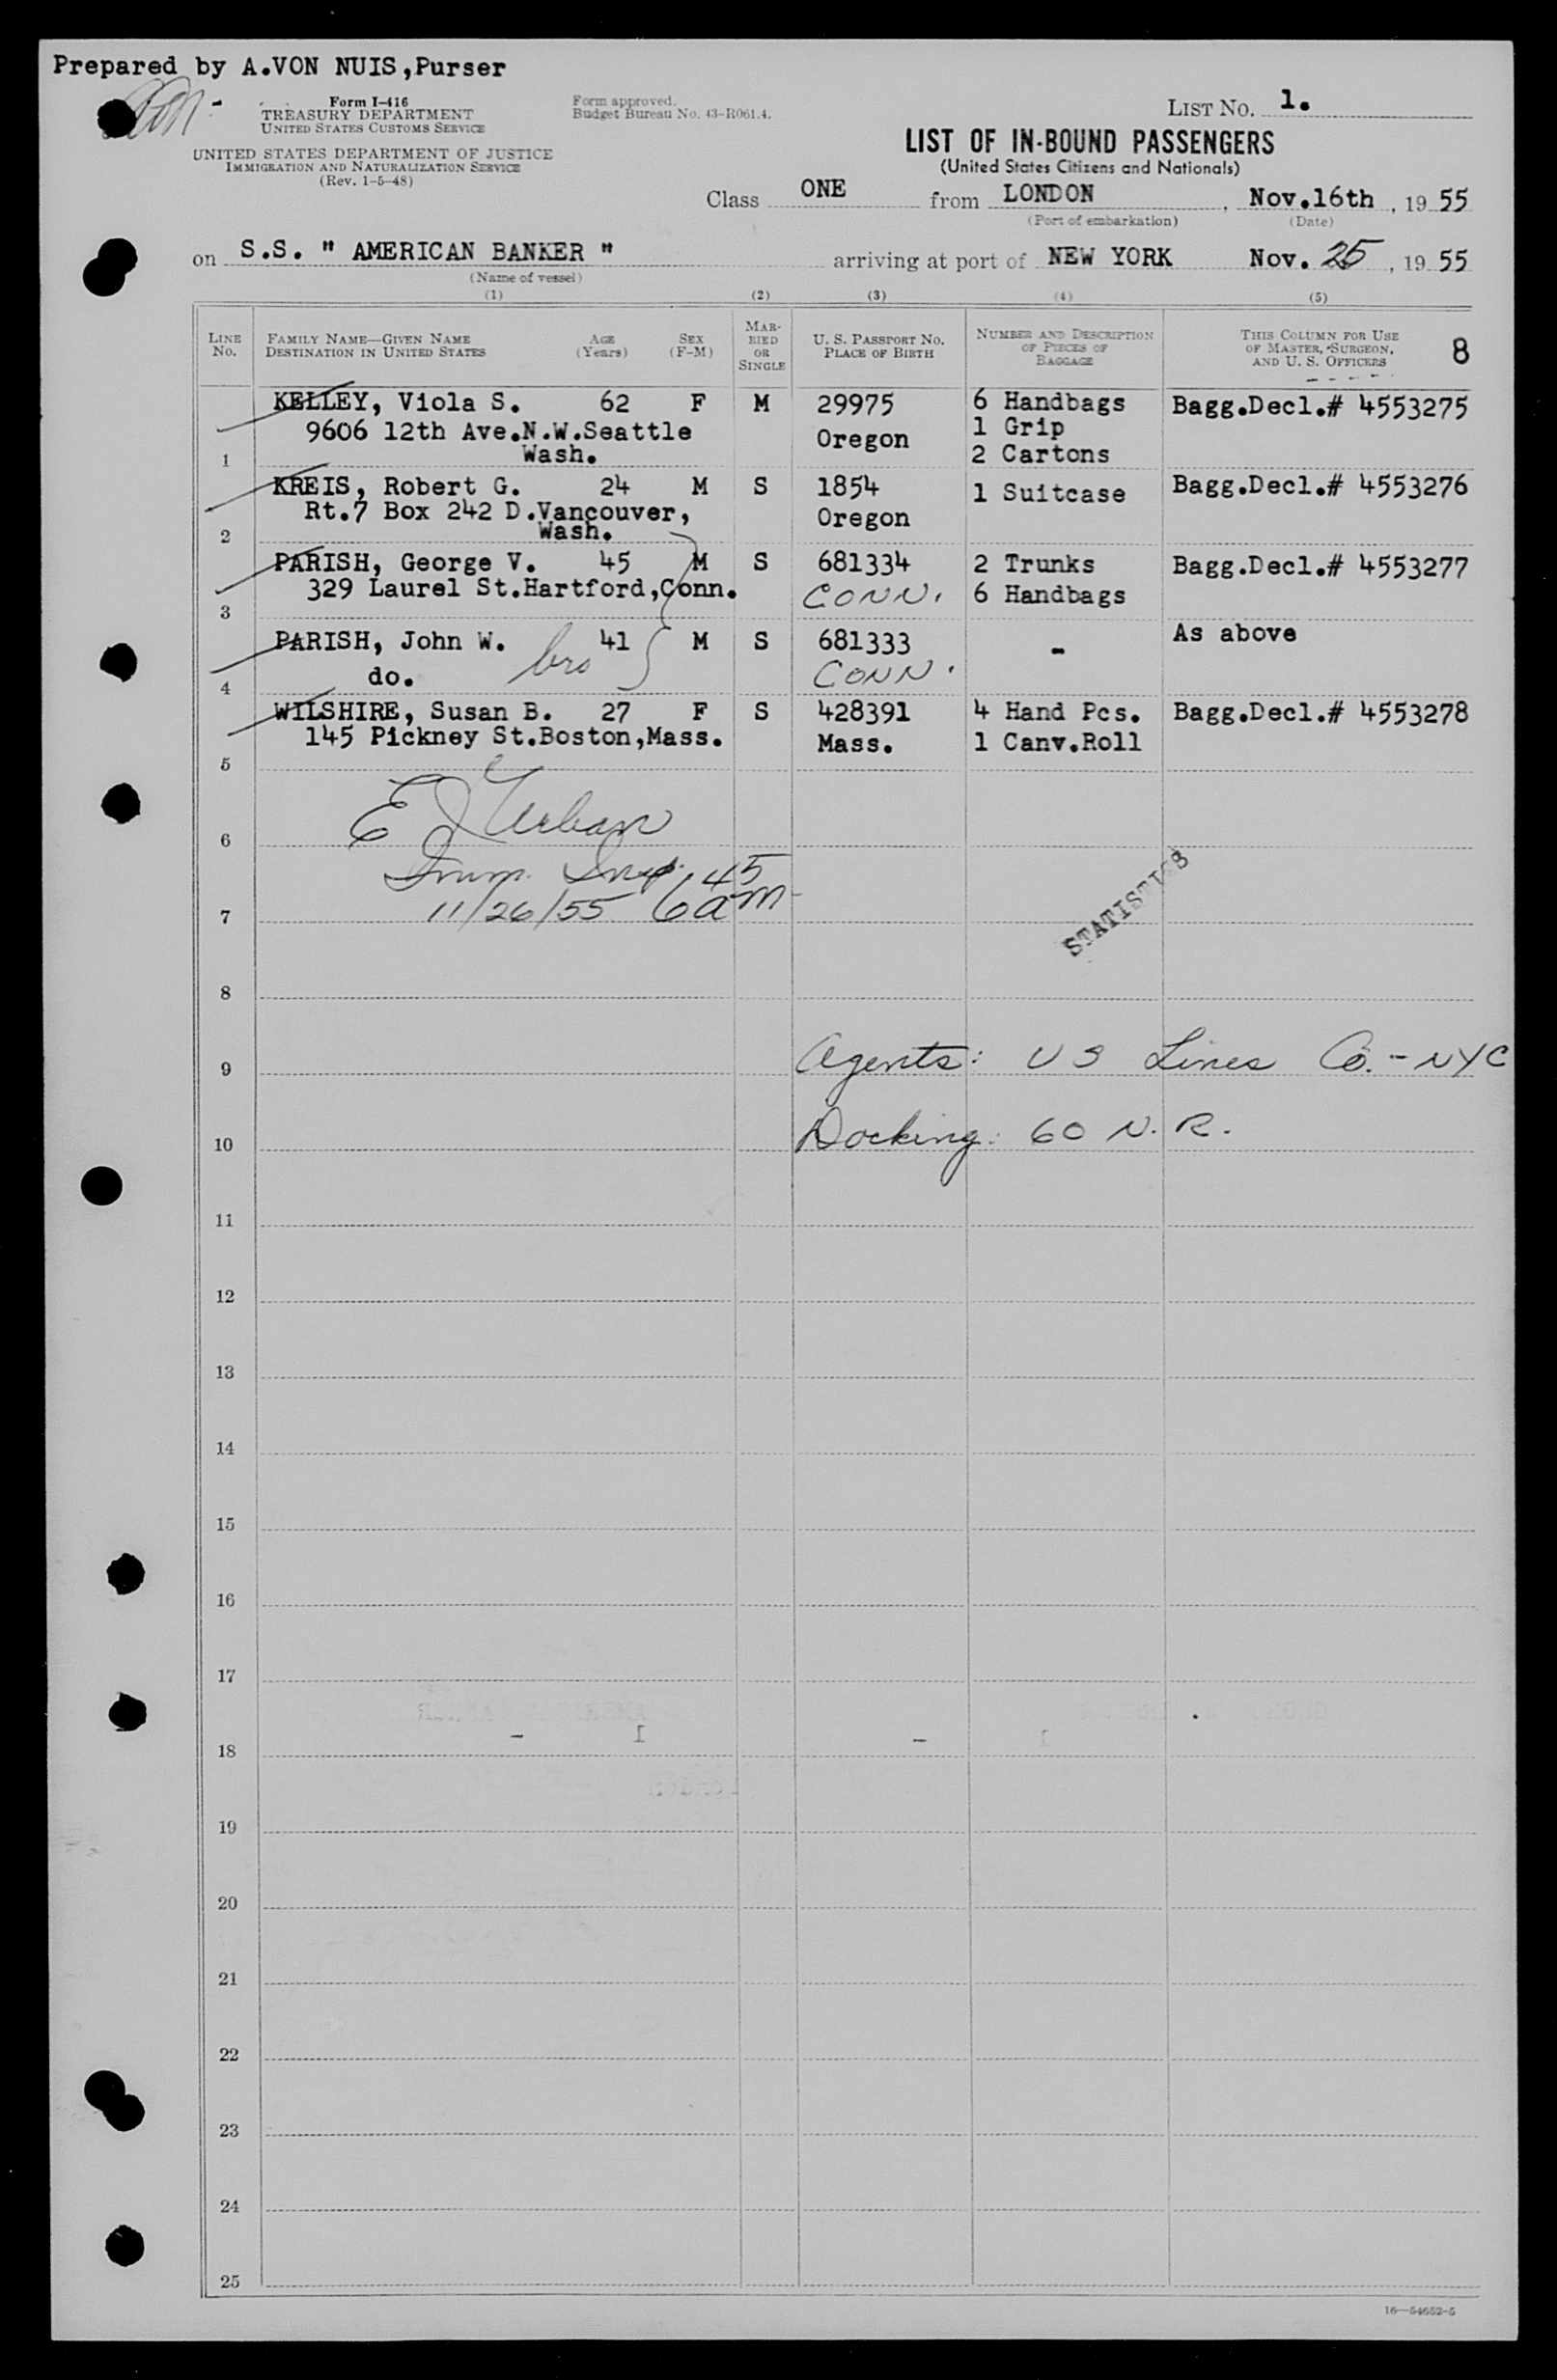 Prepared by A.VON NUIS,Purser
Form I-416
TREASURY DEPARTMENT
UNITED STATES CUSTOMS SERVICE
UNITED STATES DEPARTMENT OF JUSTICE
IMMIGRATION AND NATURALIZATION SERVICE
(Rev. 1-5-48)
Form approved.
Budget Bureau No. 43-R061.4.
LIST NO. 1.
LIST OF IN-BOUND PASSENGERS
(United States Citizens and Nationals)
Class ONE from LONDON, Nov.16th, 19 55
(Port of embarkation) (Date)
on S.S. " AMERICAN BANKER " arriving at port of NEW YORK Nov. 25, 19 55
(Name of vessel)
(1) (2) (3) (4) (5)
LINE NO. FAMILY NAME—GIVEN NAME DESTINATION IN UNITED STATES AGE (Years) SEX (F-M) MARRIED OR SINGLE U. S. PASSPORT NO. PLACE OF BIRTH NUMBER AND DESCRIPTION OF PIECES OF BAGGAGE THIS COLUMN FOR USE OF MASTER, SURGEON, AND U. S. OFFICERS 8
KELLEY, Viola S. 62 F M 29975 6 Handbags Bagg.Decl.# 4553275
9606 12th Ave.N.W.Seattle Oregon 1 Grip
1 Wash. 2 Cartons
KREIS, Robert G. 24 M S 1854 1 Suitcase Bagg.Decl.# 4553276
Rt.7 Box 242 D.Vancouver, Oregon
2 Wash.
PARISH, George V. 45 M S 681334 2 Trunks Bagg.Decl.# 4553277
329 Laurel St.Hartford,Conn. CONN. 6 Handbags
3
PARISH, John W. bro 41 M S 681333 - As above
4 do. CONN.
WILSHIRE, Susan B. 27 F S 428391 4 Hand Pcs. Bagg.Decl.# 4553278
145 Pickney St.Boston,Mass. Mass. 1 Canv.Roll
5
E J Urban
6
Imm. Insp. 6 45 am
7 11/26/55
STATISTICS
8
9 Agents: US Lines Co. - NYC
10 Docking: 60 N.R.
11
12
13
14
15
16
17
18
19
20
21
22
23
24
25
16—54652-5